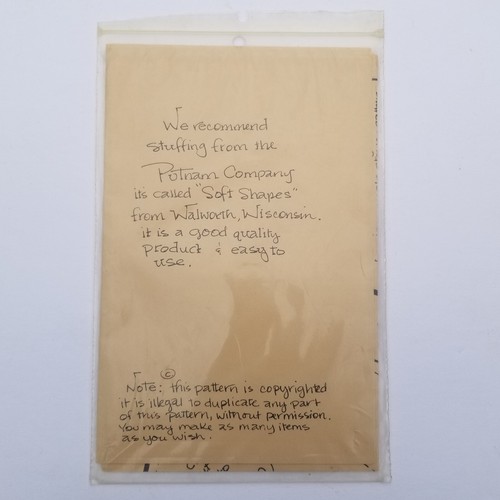 We recommend
stuffing from the
Putnam Company
its called "Soft Shapes"
from Walworth, Wisconsin.
it is a good quality
product & easy to
use.
©
Note: this pattern is copyrighted
it is illegal to duplicate any part
of this pattern, without permission.
You may make as many items
as you wish.